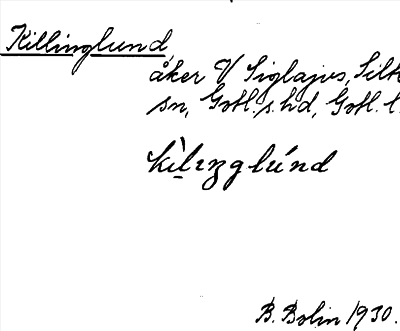 Killinglund,
åker V Siglajvs, Silt
sn, Gotl. s. hd, Gotl. l.
kìlıŋglúnd
B. Bolin 1930.